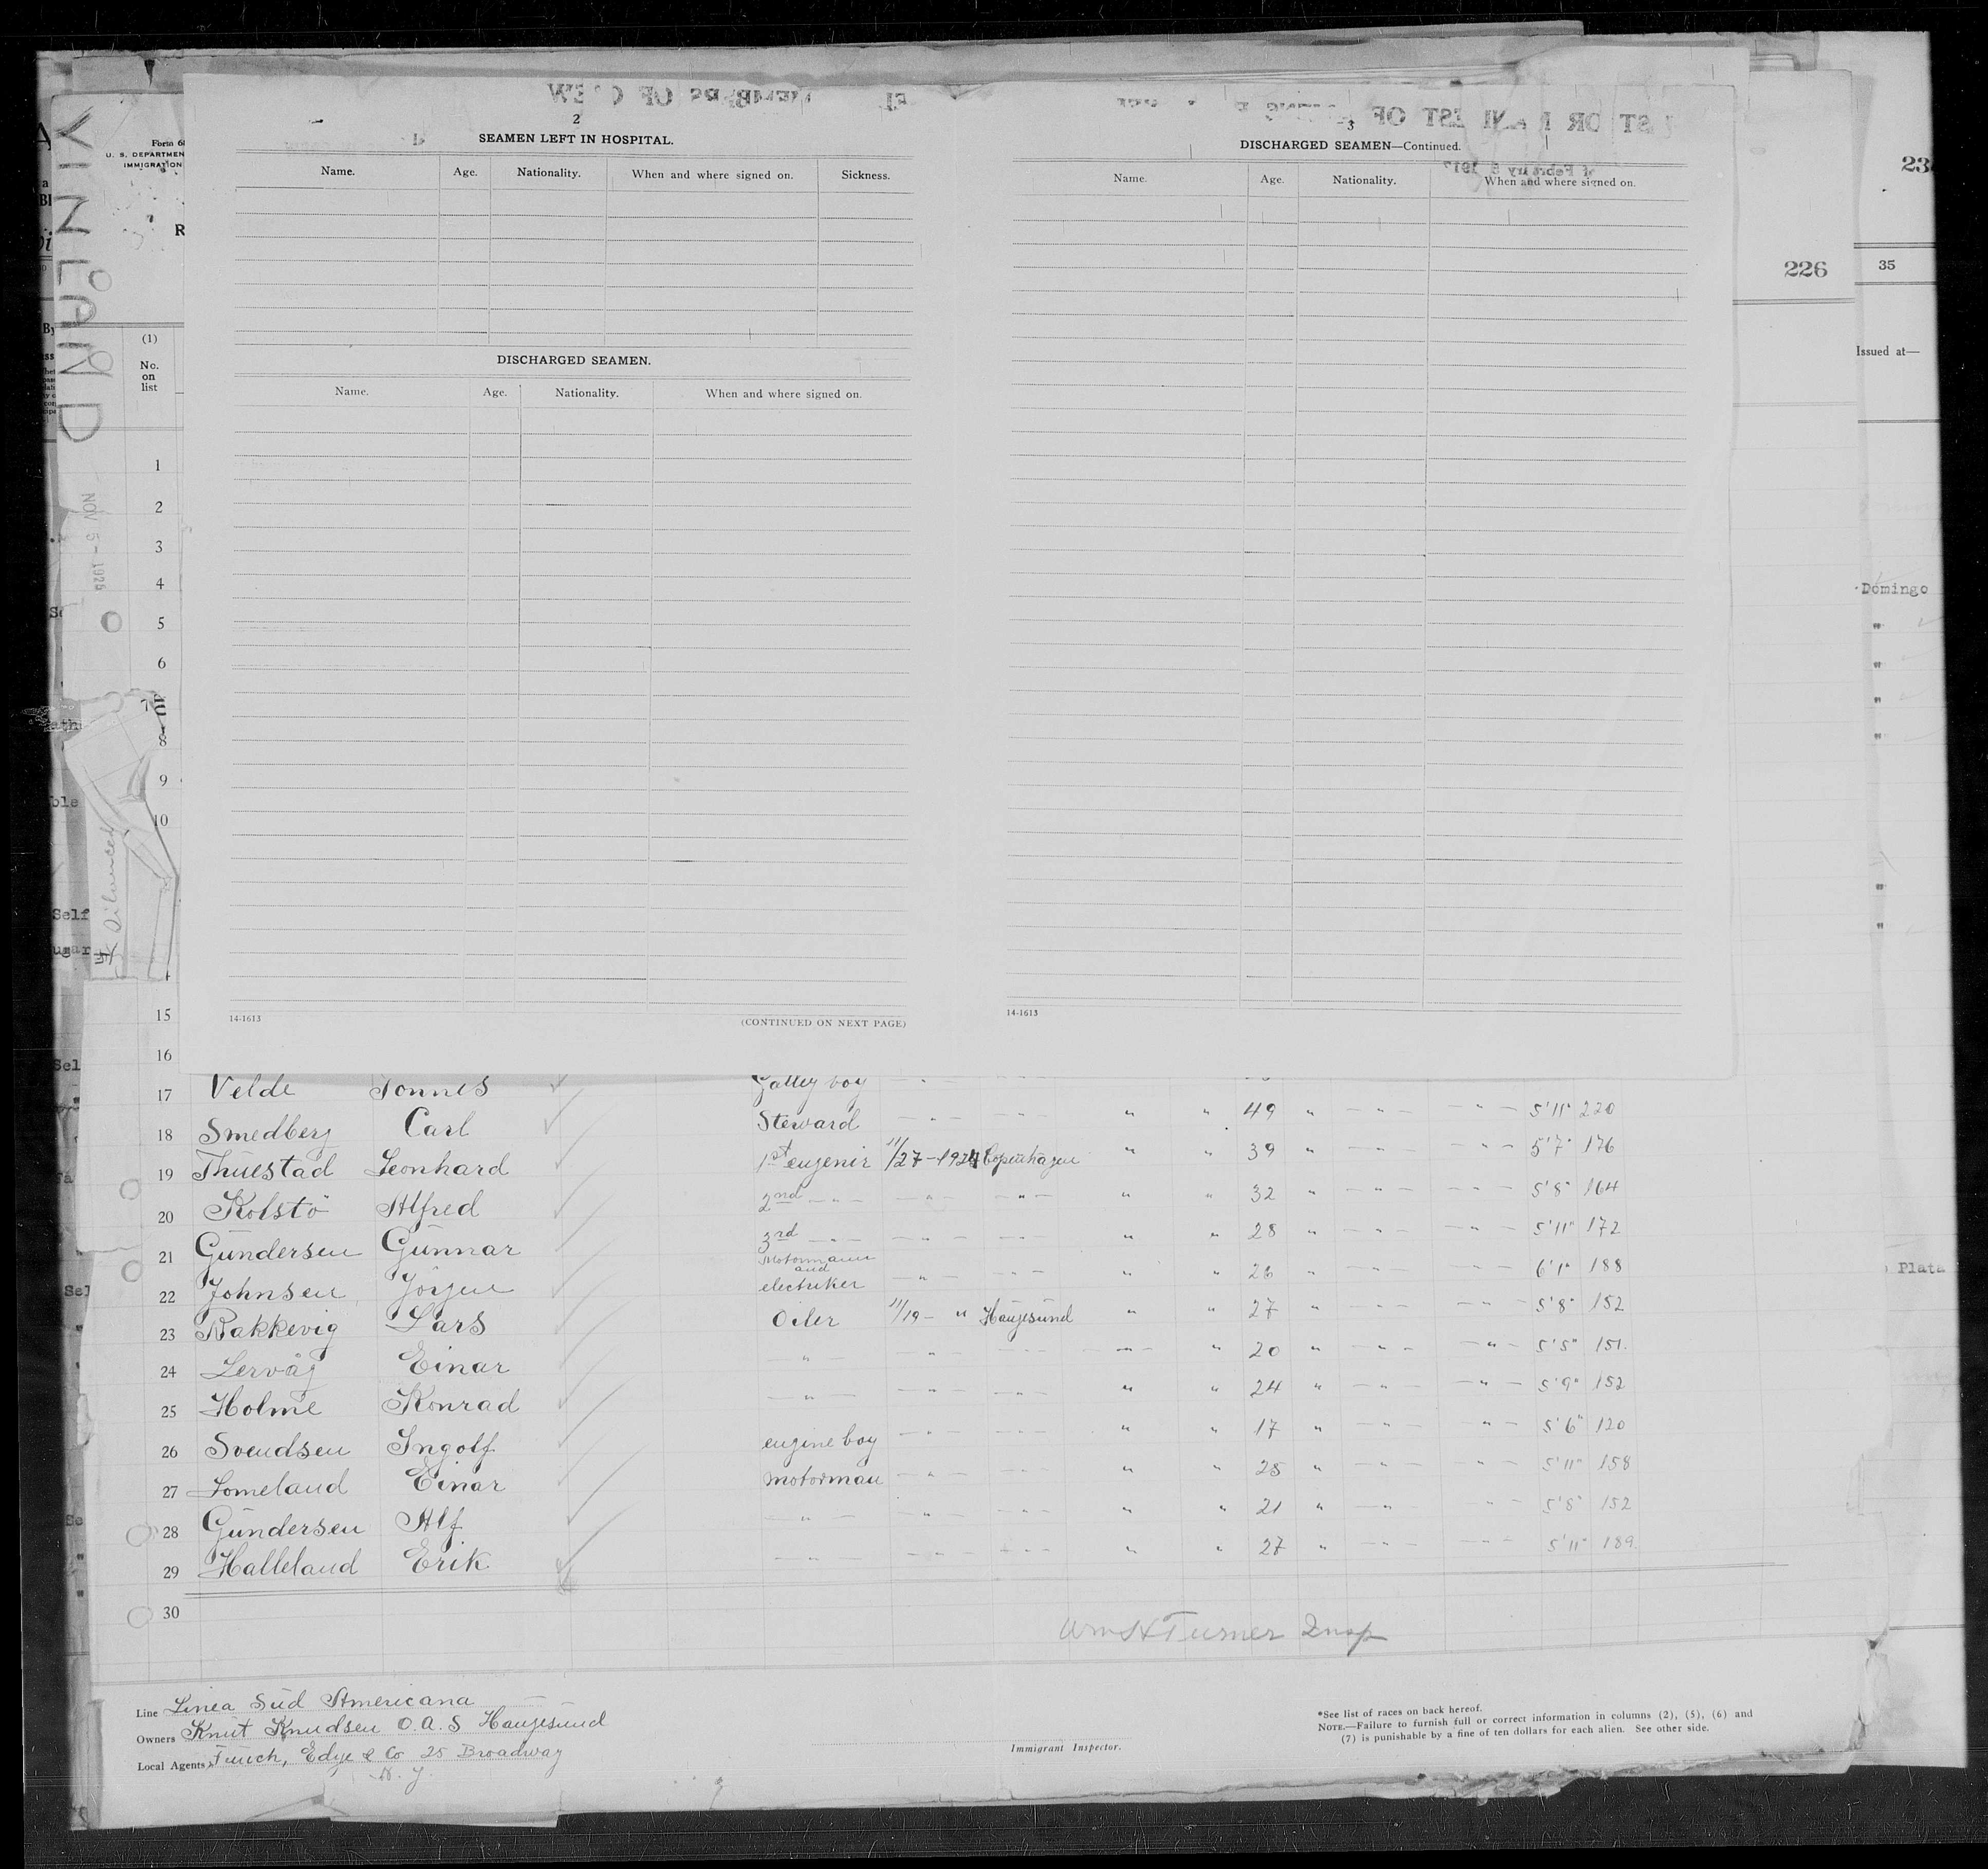 2
SEAMEN LEFT IN HOSPITAL.
Name. Age. Nationality. When and where signed on. Sickness.
DISCHARGED SEAMEN.
Name. Age. Nationality. When and where signed on.
14-1613 (CONTINUED ON NEXT PAGE)
3
DISCHARGED SEAMEN—Continued.
Name. Age. Nationality. When and where signed on.
14-1613
VINLAND
NOV 5-1925
Form 6
U. S. DEPARTMEN
IMMIGRATION
R
(1)
No.
on
list
226
23
35
Issued at—
Domingo
Plata
Self
ugar
1
2
3
4
5
6
7
8
9
10
15
16
17 Velde Tonnes Galley boy
18 Smedberg Carl Steward — " — — " — " " 49 " — " — — " — 5'11" 220
19 Thuestad Leonhard 1st engenir 11/27-1924 Copenhagen " " 39 " — " — — " — 5'7" 176
20 Kolstö Alfred 2nd — " — — " — — " — " " 32 " — " — — " — 5'8" 164
21 Gundersen Gunnar 3rd — " — — " — — " — " " 28 " — " — — " — 5'11" 172
22 Johnsen Jörgen Motormann and electriker — " — — " — " " 26 " — " — — " — 6'1" 188
23 Bakkevig Lars Oiler 11/19- " Haugesund " " 27 " — " — — " — 5'8" 152
24 Lervåg Einar — " — — " — — " — — " — " 20 " — " — — " — 5'5" 151.
25 Holme Konrad — " — — " — — " — " " 24 " — " — — " — 5'9" 152
26 Svendsen Ingolf engine boy — " — — " — " " 17 " — " — — " — 5'6" 120
27 Lomeland Einar motorman — " — — " — " " 25 " — " — — " — 5'11" 158
28 Gundersen Alf — " — — " — — " — " " 21 " — " — " — 5'8" 152
29 Halleland Erik — " — — " — — " — " " 27 " — " — — " — 5'11" 189.
30
Wm H Turner Insp
Line Linea Sud Americana
Owners Knut Knudsen O.A.S Haugesund
Local Agents Funch, Edye & Co 25 Broadway
N. Y.
Immigrant Inspector.
*See list of races on back hereof.
NOTE.—Failure to furnish full or correct information in columns (2), (5), (6) and
(7) is punishable by a fine of ten dollars for each alien. See other side.